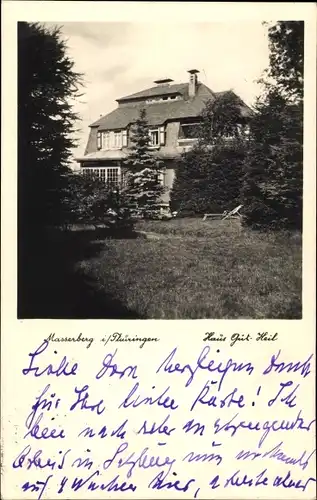 Masserberg i/Thüringen Haus Gut-Heil
Liebe Dora, herzlichen Dank
für Ihre liebe Karte! Ich
bin nach sehr anstrengender
Arbeit in Salzburg nun
auf 4 Wochen hier, arbeite aber